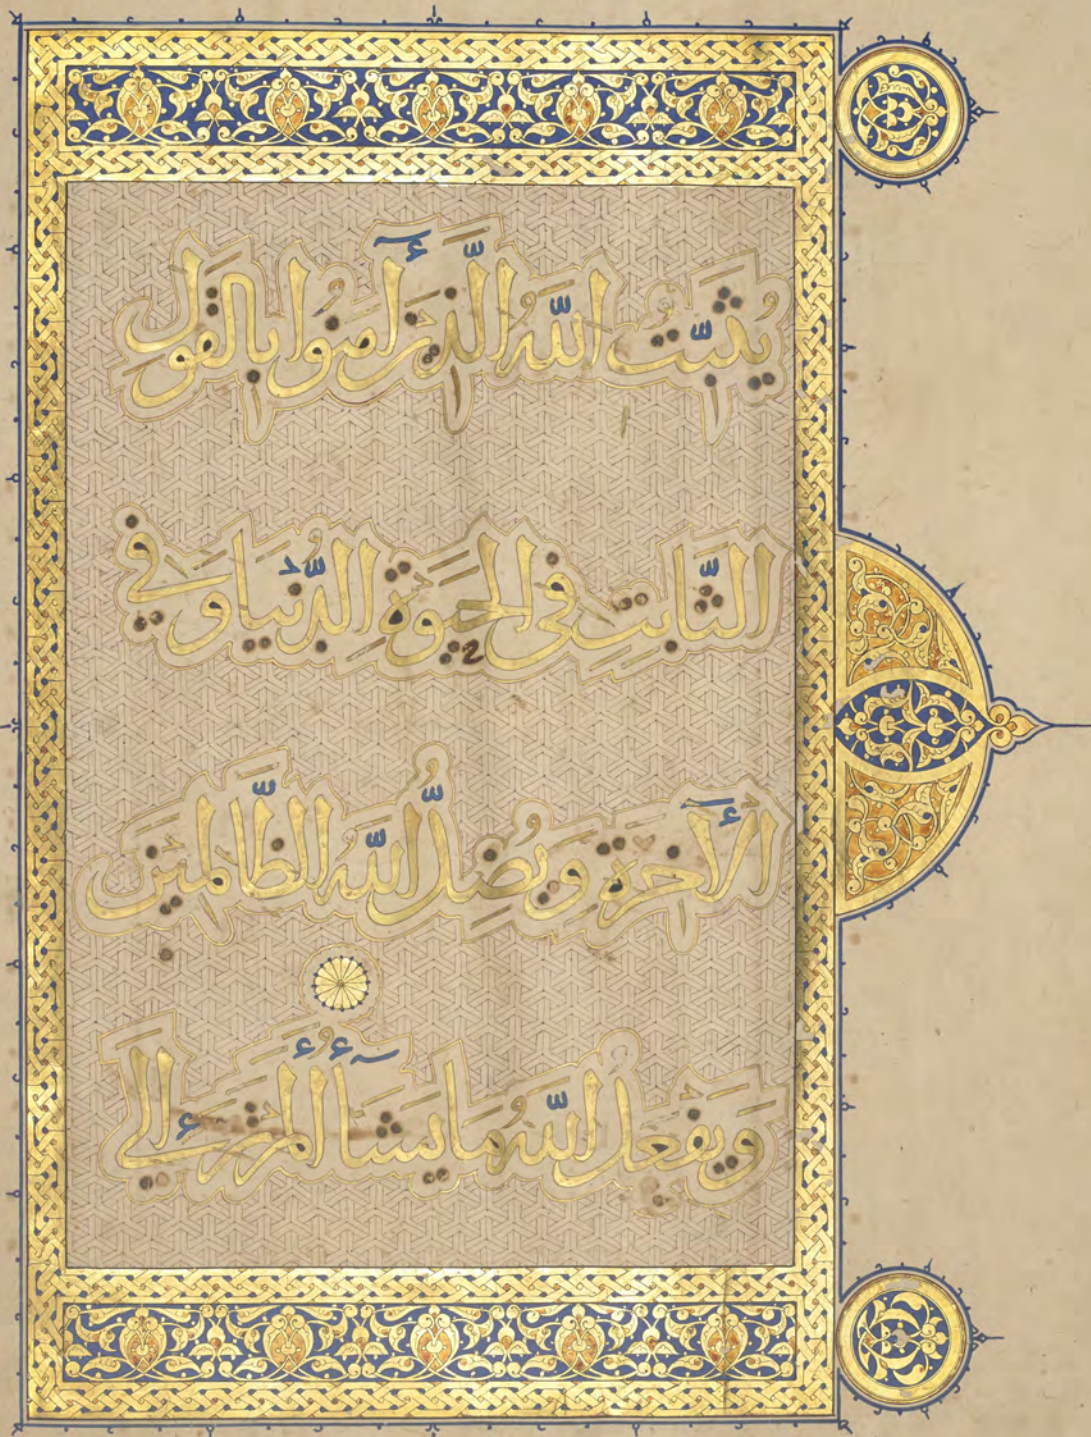 يُثَبِّتُ اللَّهُ الَّذِينَ أٓمَنُوا بِالْقَوْلِ
الثَّابِتِ فِي الْحَيَوٰةِ الدُّنْيَا وَفِي
الْأٓخِرَةِ وَيُضِلُّ اللَّهُ الظَّالِمِينَ
وَيَفْعَلُ اللَّهُ مَا يَشَآءُ أَلَمْ تَرَ إِلَى